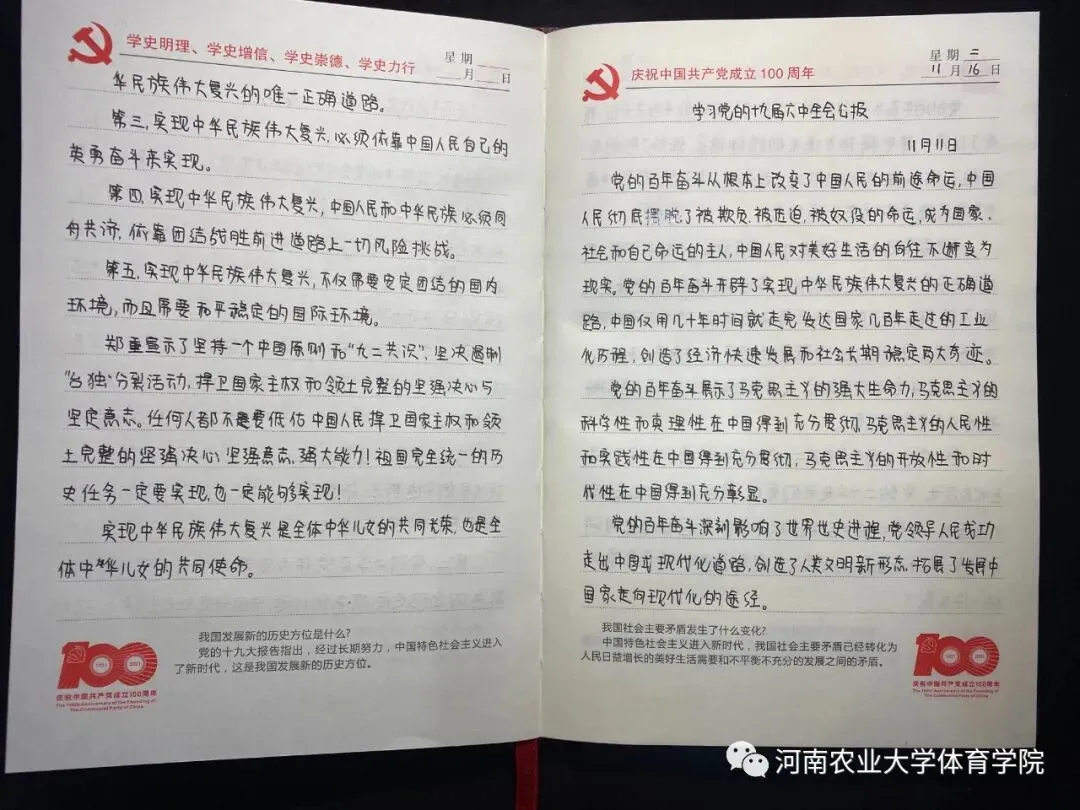 学史明理、学史增信、学史崇德、学史力行
星期
月 日
华民族伟大复兴的唯一正确道路。
第三,实现中华民族伟大复兴,必须依靠中国人民自己的
英勇奋斗来实现。
第四,实现中华民族伟大复兴,中国人民和中华民族必须同
舟共济,依靠团结战胜前进道路上一切风险挑战。
第五,实现中华民族伟大复兴,不仅需要安定团结的国内
环境,而且需要和平稳定的国际环境。
郑重宣示了坚持一个中国原则和“九二共识”,坚决遏制
“台独”分裂活动,捍卫国家主权和领土完整的坚强决心与
坚定意志。任何人都不要低估中国人民捍卫国家主权和领
土完整的坚强决心、坚强意志、强大能力!祖国完全统一的历
史任务一定要实现,也一定能够实现!
实现中华民族伟大复兴是全体中华儿女的共同光荣,也是全
体中华儿女的共同使命。
我国发展新的历史方位是什么?
党的十九大报告指出,经过长期努力,中国特色社会主义进入
了新时代,这是我国发展新的历史方位。
100
1921 2021
庆祝中国共产党成立100周年
The 100th Anniversary of the Founding of
The Communist Party of China
庆祝中国共产党成立100周年
星期 二
11月16日
学习党的十九届六中全会公报
11月11日
党的百年奋斗从根本上改变了中国人民的前途命运,中国
人民彻底摆脱了被欺负、被压迫、被奴役的命运,成为国家、
社会和自己命运的主人,中国人民对美好生活的向往不断变为
现实。党的百年奋斗开辟了实现中华民族伟大复兴的正确道
路,中国仅用几十年时间就走完发达国家几百年走过的工业
化历程,创造了经济快速发展和社会长期稳定两大奇迹。
党的百年奋斗展示了马克思主义的强大生命力,马克思主义的
科学性和真理性在中国得到充分贯彻,马克思主义的人民性
和实践性在中国得到充分贯彻,马克思主义的开放性和时
代性在中国得到充分彰显。
党的百年奋斗深刻影响了世界世史进程,党领导人民成功
走出中国式现代化道路,创造了人类文明新形态,拓展了发展中
国家走向现代化的途径。
我国社会主要矛盾发生了什么变化?
中国特色社会主义进入新时代,我国社会主要矛盾已经转化为
人民日益增长的美好生活需要和不平衡不充分的发展之间的矛盾。
100
1921 2021
庆祝中国共产党成立100周年
The 100th Anniversary of the Founding of
The Communist Party of China
河南农业大学体育学院